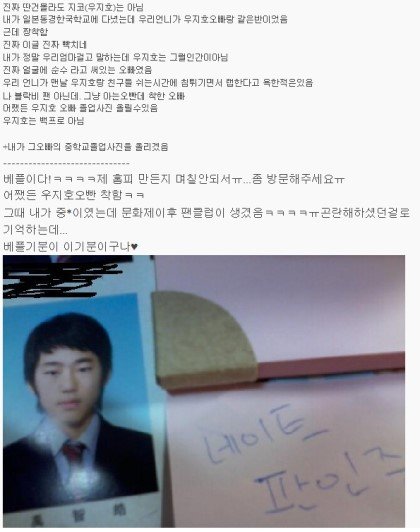 진짜 딴건몰라도 지코(우지호)는 아님
내가 일본동경한국학교에 다녔는데 우리언니가 우지호오빠랑 같은반이었음
근데 장착함
진짜 이글 진짜 빡치네
내가 정말 우리엄마걸고 말하는데 우지호는 그럴인간이아님
진짜 얼굴에 순수 라고 써있는 오빠였음
우리 언니가 맨날 우지호랑 친구들 쉬는시간에 침튀기면서 랩한다고 욕한적은있음
나 블락비 팬 아닌데. 그냥 아는오빤데 착한 오빠
어쨌든 우지호 오빠 졸업사진 올릴수있음
우지호는 백프로 아님
+내가 그오빠의 중학교졸업사진을 올리겠음
------------------------------
베플이다!ㅋㅋㅋㅋ제 홈피 만든지 며칠안되서ㅠ...좀 방문해주세요ㅠ
어쨌든 우지호오빤 착함ㅋㅋ
그때 내가 중*이였는데 문화제이후 팬클럽이 생겼음ㅋㅋㅋㅋㅠ곤란해하셨던걸로
기억하는데...
베플기분이 이기분이구나♥
네이트
판인즈
禹 智 皓